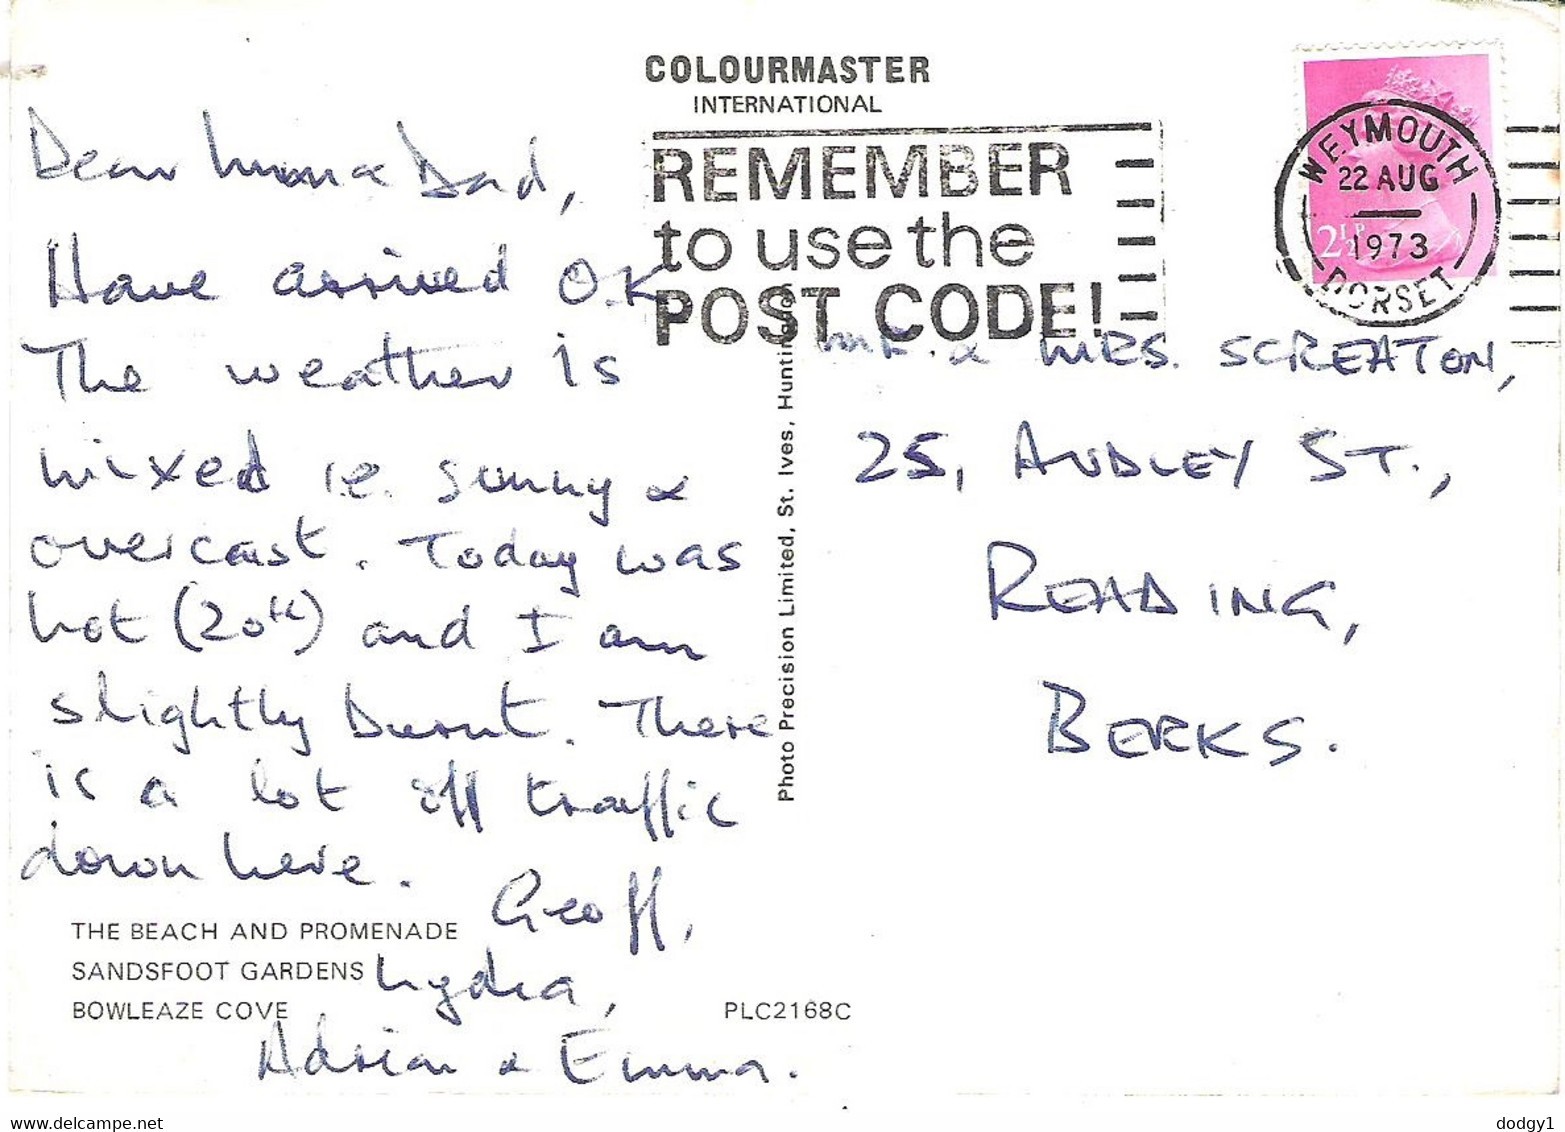 COLOURMASTER
INTERNATIONAL
REMEMBER
to use the
POST CODE!
WEYMOUTH
22 AUG
1973
DORSET
2½P
Dear Mum & Dad,
Have arrived O.K
The weather is
mixed i.e. sunny &
overcast. Today was
hot (20th) and I am
slightly burnt. There
is a lot off traffic
down here.
Geoff,
Lydia,
Adrian & Emma.
THE BEACH AND PROMENADE
SANDSFOOT GARDENS
BOWLEAZE COVE
PLC2168C
Photo Precision Limited, St. Ives, Huntingdon
MR. & MRS. SCREATON,
25, AUDLEY ST.,
READING,
BERKS.
www.delcampe.net
dodgy1